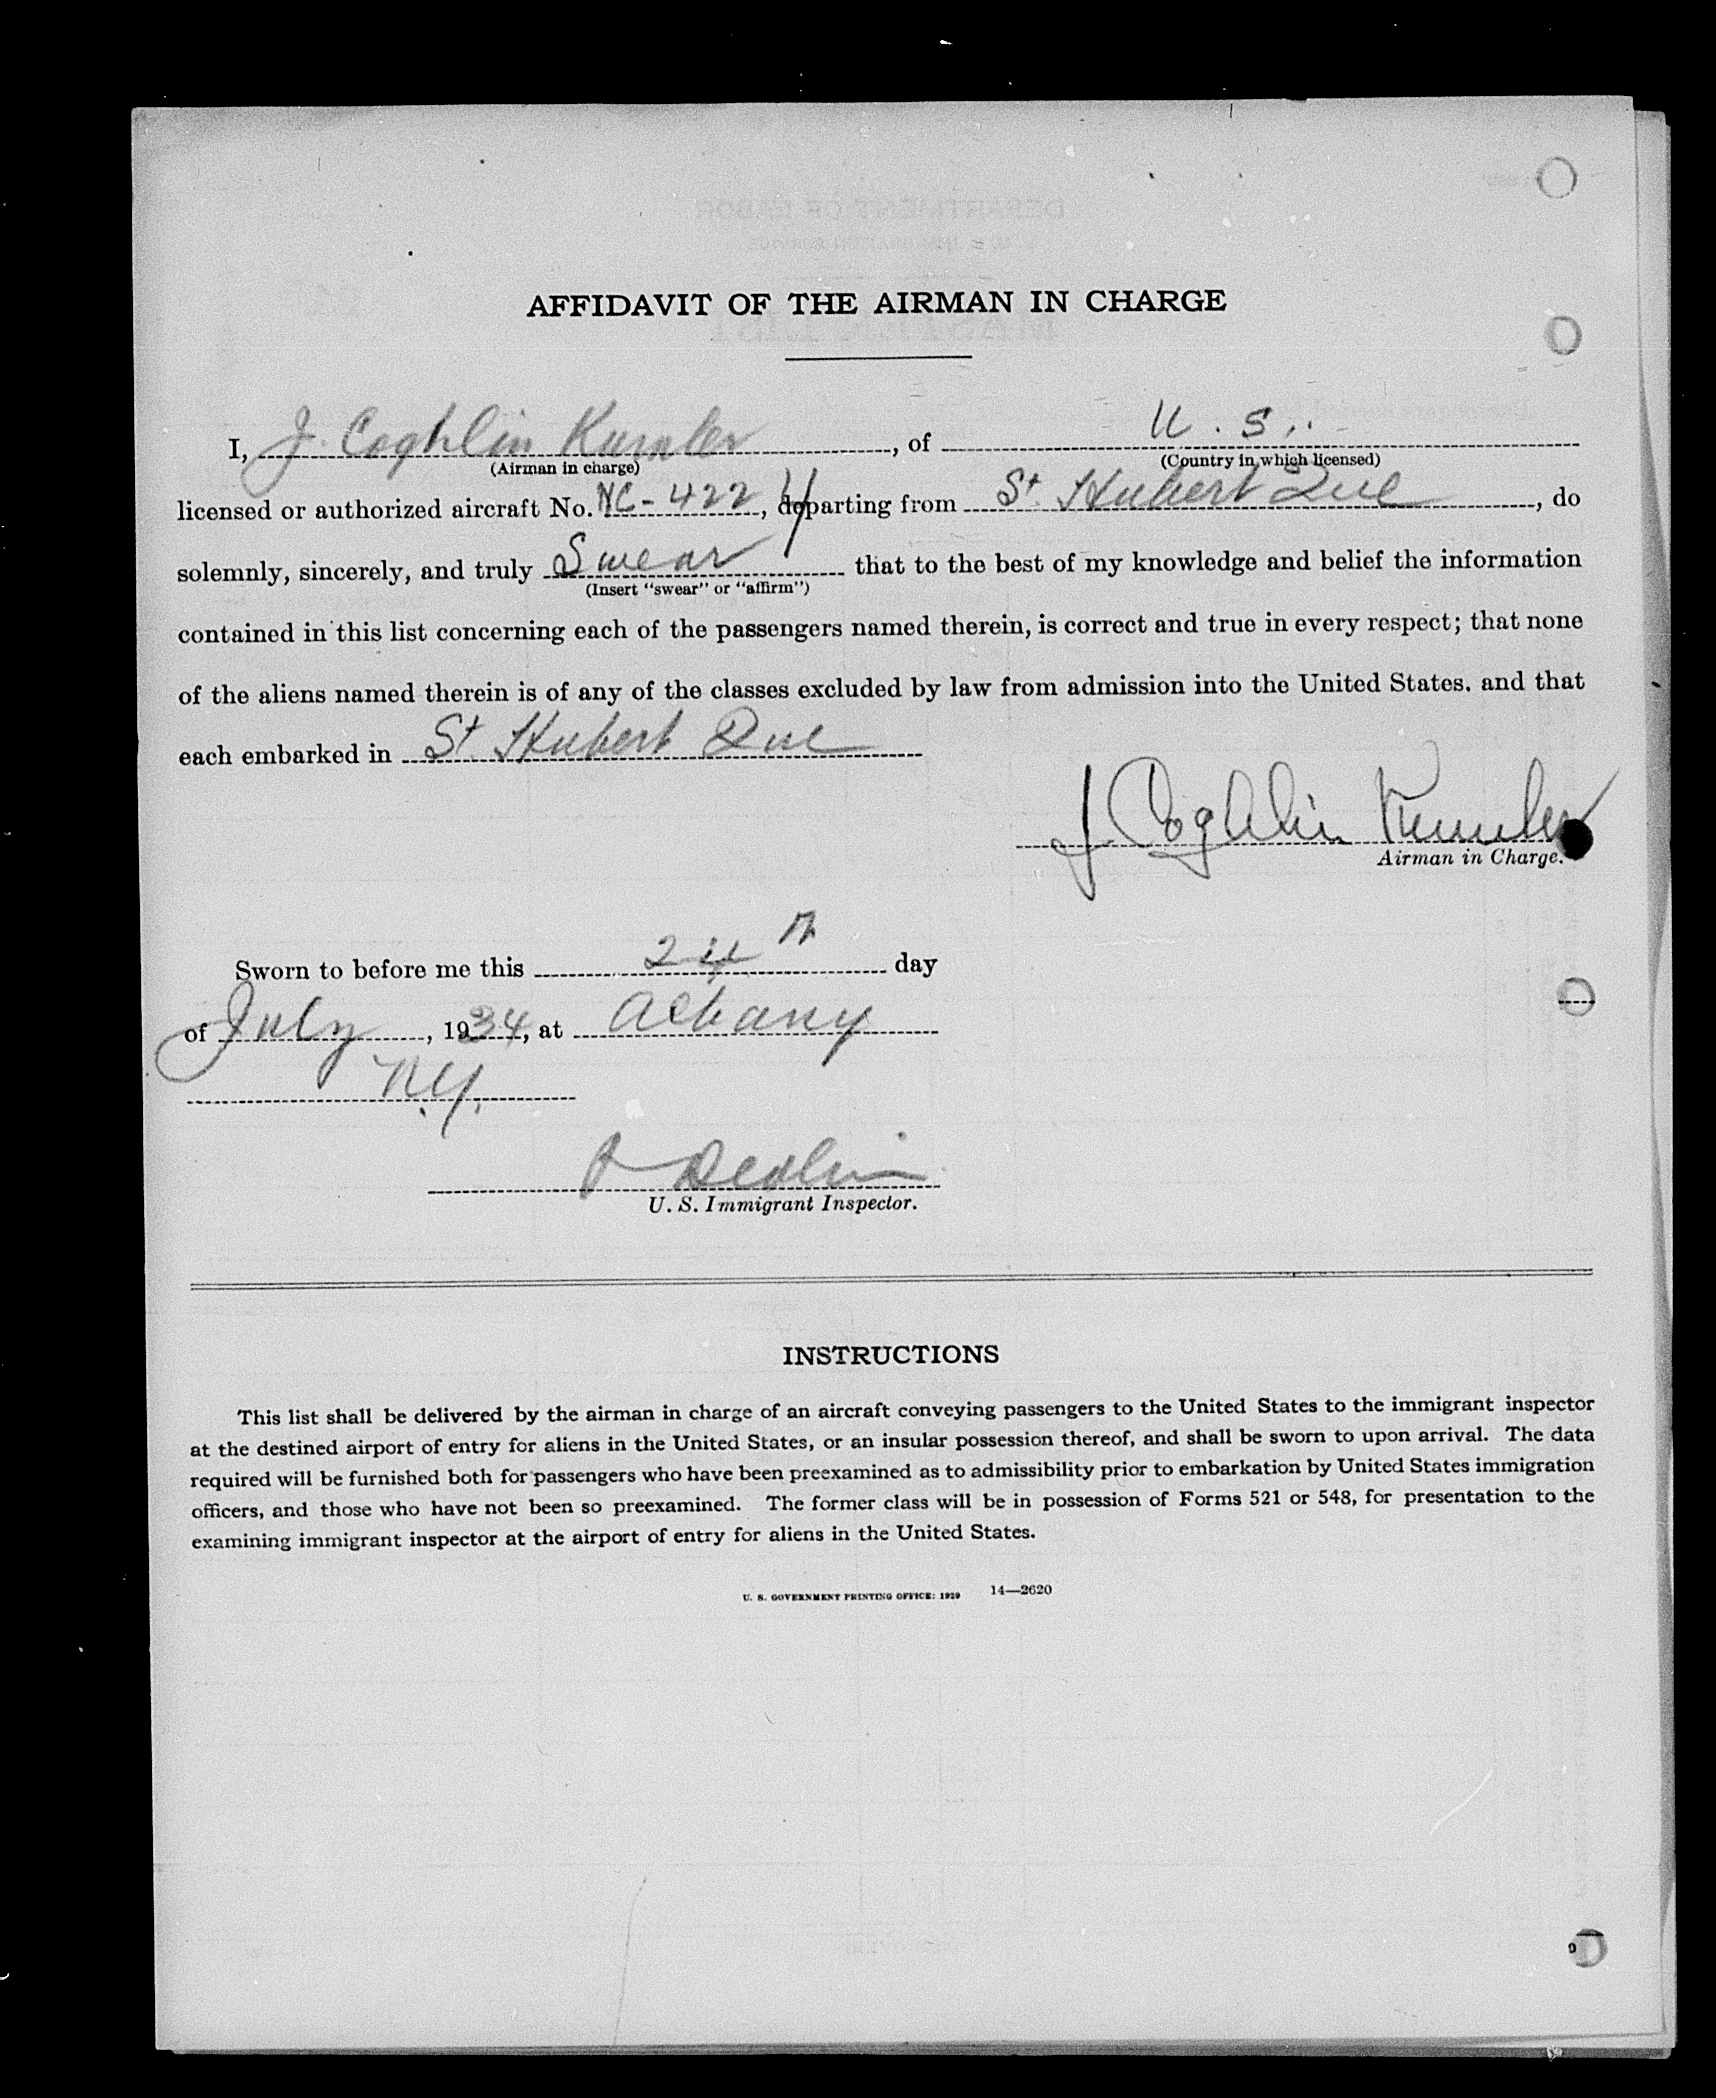 AFFIDAVIT OF THE AIRMAN IN CHARGE
I, J. Coghlin Kumler, of U. S.
(Airman in charge) (Country in which licensed)
licensed or authorized aircraft No. NC-422 Y, departing from St Hubert Que, do
solemnly, sincerely, and truly Swear that to the best of my knowledge and belief the information
(Insert "swear" or "affirm")
contained in this list concerning each of the passengers named therein, is correct and true in every respect; that none
of the aliens named therein is of any of the classes excluded by law from admission into the United States. and that
each embarked in St. Hubert Que
J Coghlin Kumler
Airman in Charge.
Sworn to before me this 24th day
of July, 1934, at Albany
N.Y.
Devlin
U. S. Immigrant Inspector.
INSTRUCTIONS
This list shall be delivered by the airman in charge of an aircraft conveying passengers to the United States to the immigrant inspector
at the destined airport of entry for aliens in the United States, or an insular possession thereof, and shall be sworn to upon arrival. The data
required will be furnished both for passengers who have been preexamined as to admissibility prior to embarkation by United States immigration
officers, and those who have not been so preexamined. The former class will be in possession of Forms 521 or 548, for presentation to the
examining immigrant inspector at the airport of entry for aliens in the United States.
U. S. GOVERNMENT PRINTING OFFICE: 1929 14—2620